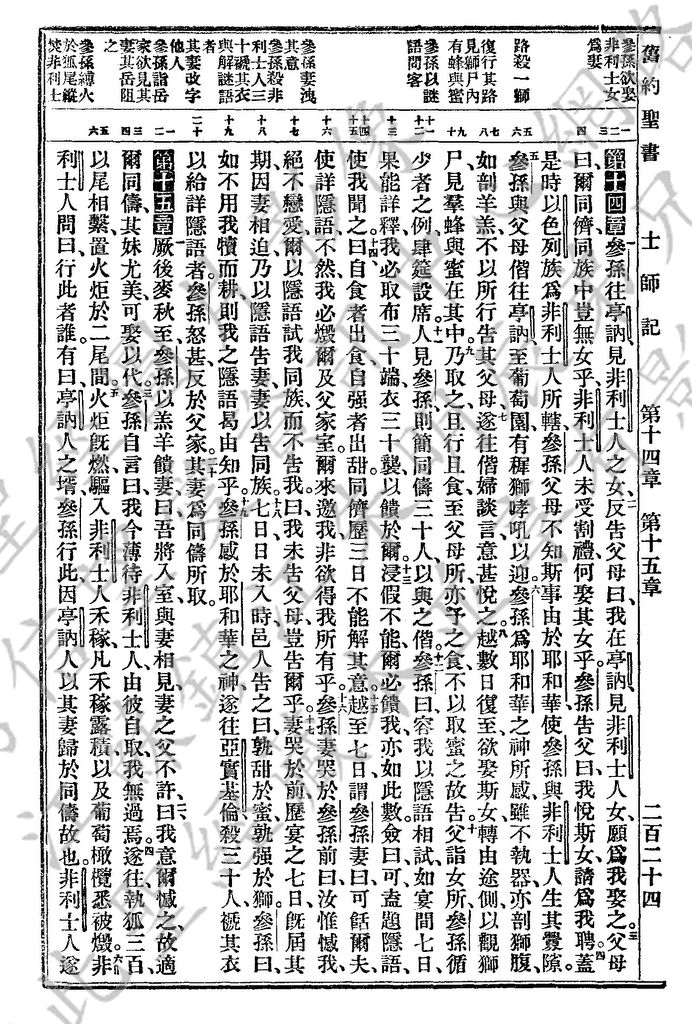 舊約聖書 士師記 第十四章 第十五章 二百二十四
參孫欲娶
非利士女
爲妻
路殺一獅
復行其路
見獅尸內
有蜂與蜜
參孫以謎
語問客
參孫妻洩
其意
參孫殺非
利士人三
十褫其衣
與解謎語
者
其妻改字
他人
參孫詣岳
家欲見其
妻其岳阻
之
參孫縛火
於狐尾縱
焚非利士
第十四章 參孫往亭訥、見非利士人之女、二反告父母曰、我在亭訥、見非利士人女、願爲我娶之。三父母
曰、爾同儕同族中、豈無女乎、非利士人未受割禮、何娶其女乎、參孫告父曰、我悅斯女、請爲我聘。四蓋
是時以色列族爲非利士人所轄、參孫父母不知斯事由於耶和華、使參孫與非利士人生其釁隙。
五參孫與父母偕往亭訥、至葡萄園、有穉獅哮吼以迎。六參孫爲耶和華之神所感、雖不執器、亦剖獅腹、
如剖羊羔、不以所行告其父母、七遂往偕婦談言、意甚悅之。八越數日復至、欲娶斯女、轉由途側以觀獅
尸、見羣蜂與蜜在其中。九乃取之、且行且食、至父母所、亦予之食、不以取蜜之故告。十父詣女所、參孫循
少者之例、肆筵設席。十一人見參孫、則簡同儔三十人以與之偕。十二參孫曰、容我以隱語相試、如宴間七日、
果能詳釋、我必取布三十端、衣三十襲、以饋於爾。十三浸假不能、爾必饋我、亦如此數、僉曰、可盍題隱語、
使我聞之。十四曰、自食者出食、自强者出甜、同儕歷三日不能解其意。十五越至七日、謂參孫妻曰、可餂爾夫、
使詳隱語、不然、我必燬爾及父家室、爾來邀我、非欲得我所有乎。十六參孫妻哭於參孫前曰、汝惟憾我、
絕不戀愛、爾以隱語試我同族、而不告我、曰、我未告父母、豈告爾乎。十七妻哭於前、歷宴之七日、旣屆其
期、因妻相迫、乃以隱語告妻、妻以告同族。十八七日日未入時、邑人告之曰、孰甜於蜜、孰强於獅、參孫曰、
如不用我犢而耕、則我之隱語曷由知乎。十九參孫感於耶和華之神、遂往亞實基倫、殺三十人、褫其衣
以給詳隱語者、參孫怒甚、反於父家。二十其妻爲同儔所取。
第十五章 一厥後麥秋至、參孫以羔羊饋妻、曰、吾將入室、與妻相見、妻之父不許、二曰、我意爾憾之、故適
爾同儔、其妹尤美、可娶以代。三參孫自言曰、我今薄待非利士人、由彼自取、我無過焉。四遂往執狐三百、
以尾相繫、置火炬於二尾間。五火炬旣燃、驅入非利士人禾稼、凡禾稼露積、以及葡萄橄欖、悉被燬。六非
利士人問曰、行此者誰、有曰、亭訥人之壻參孫行此、因亭訥人以其妻歸於同儔故也、非利士人遂